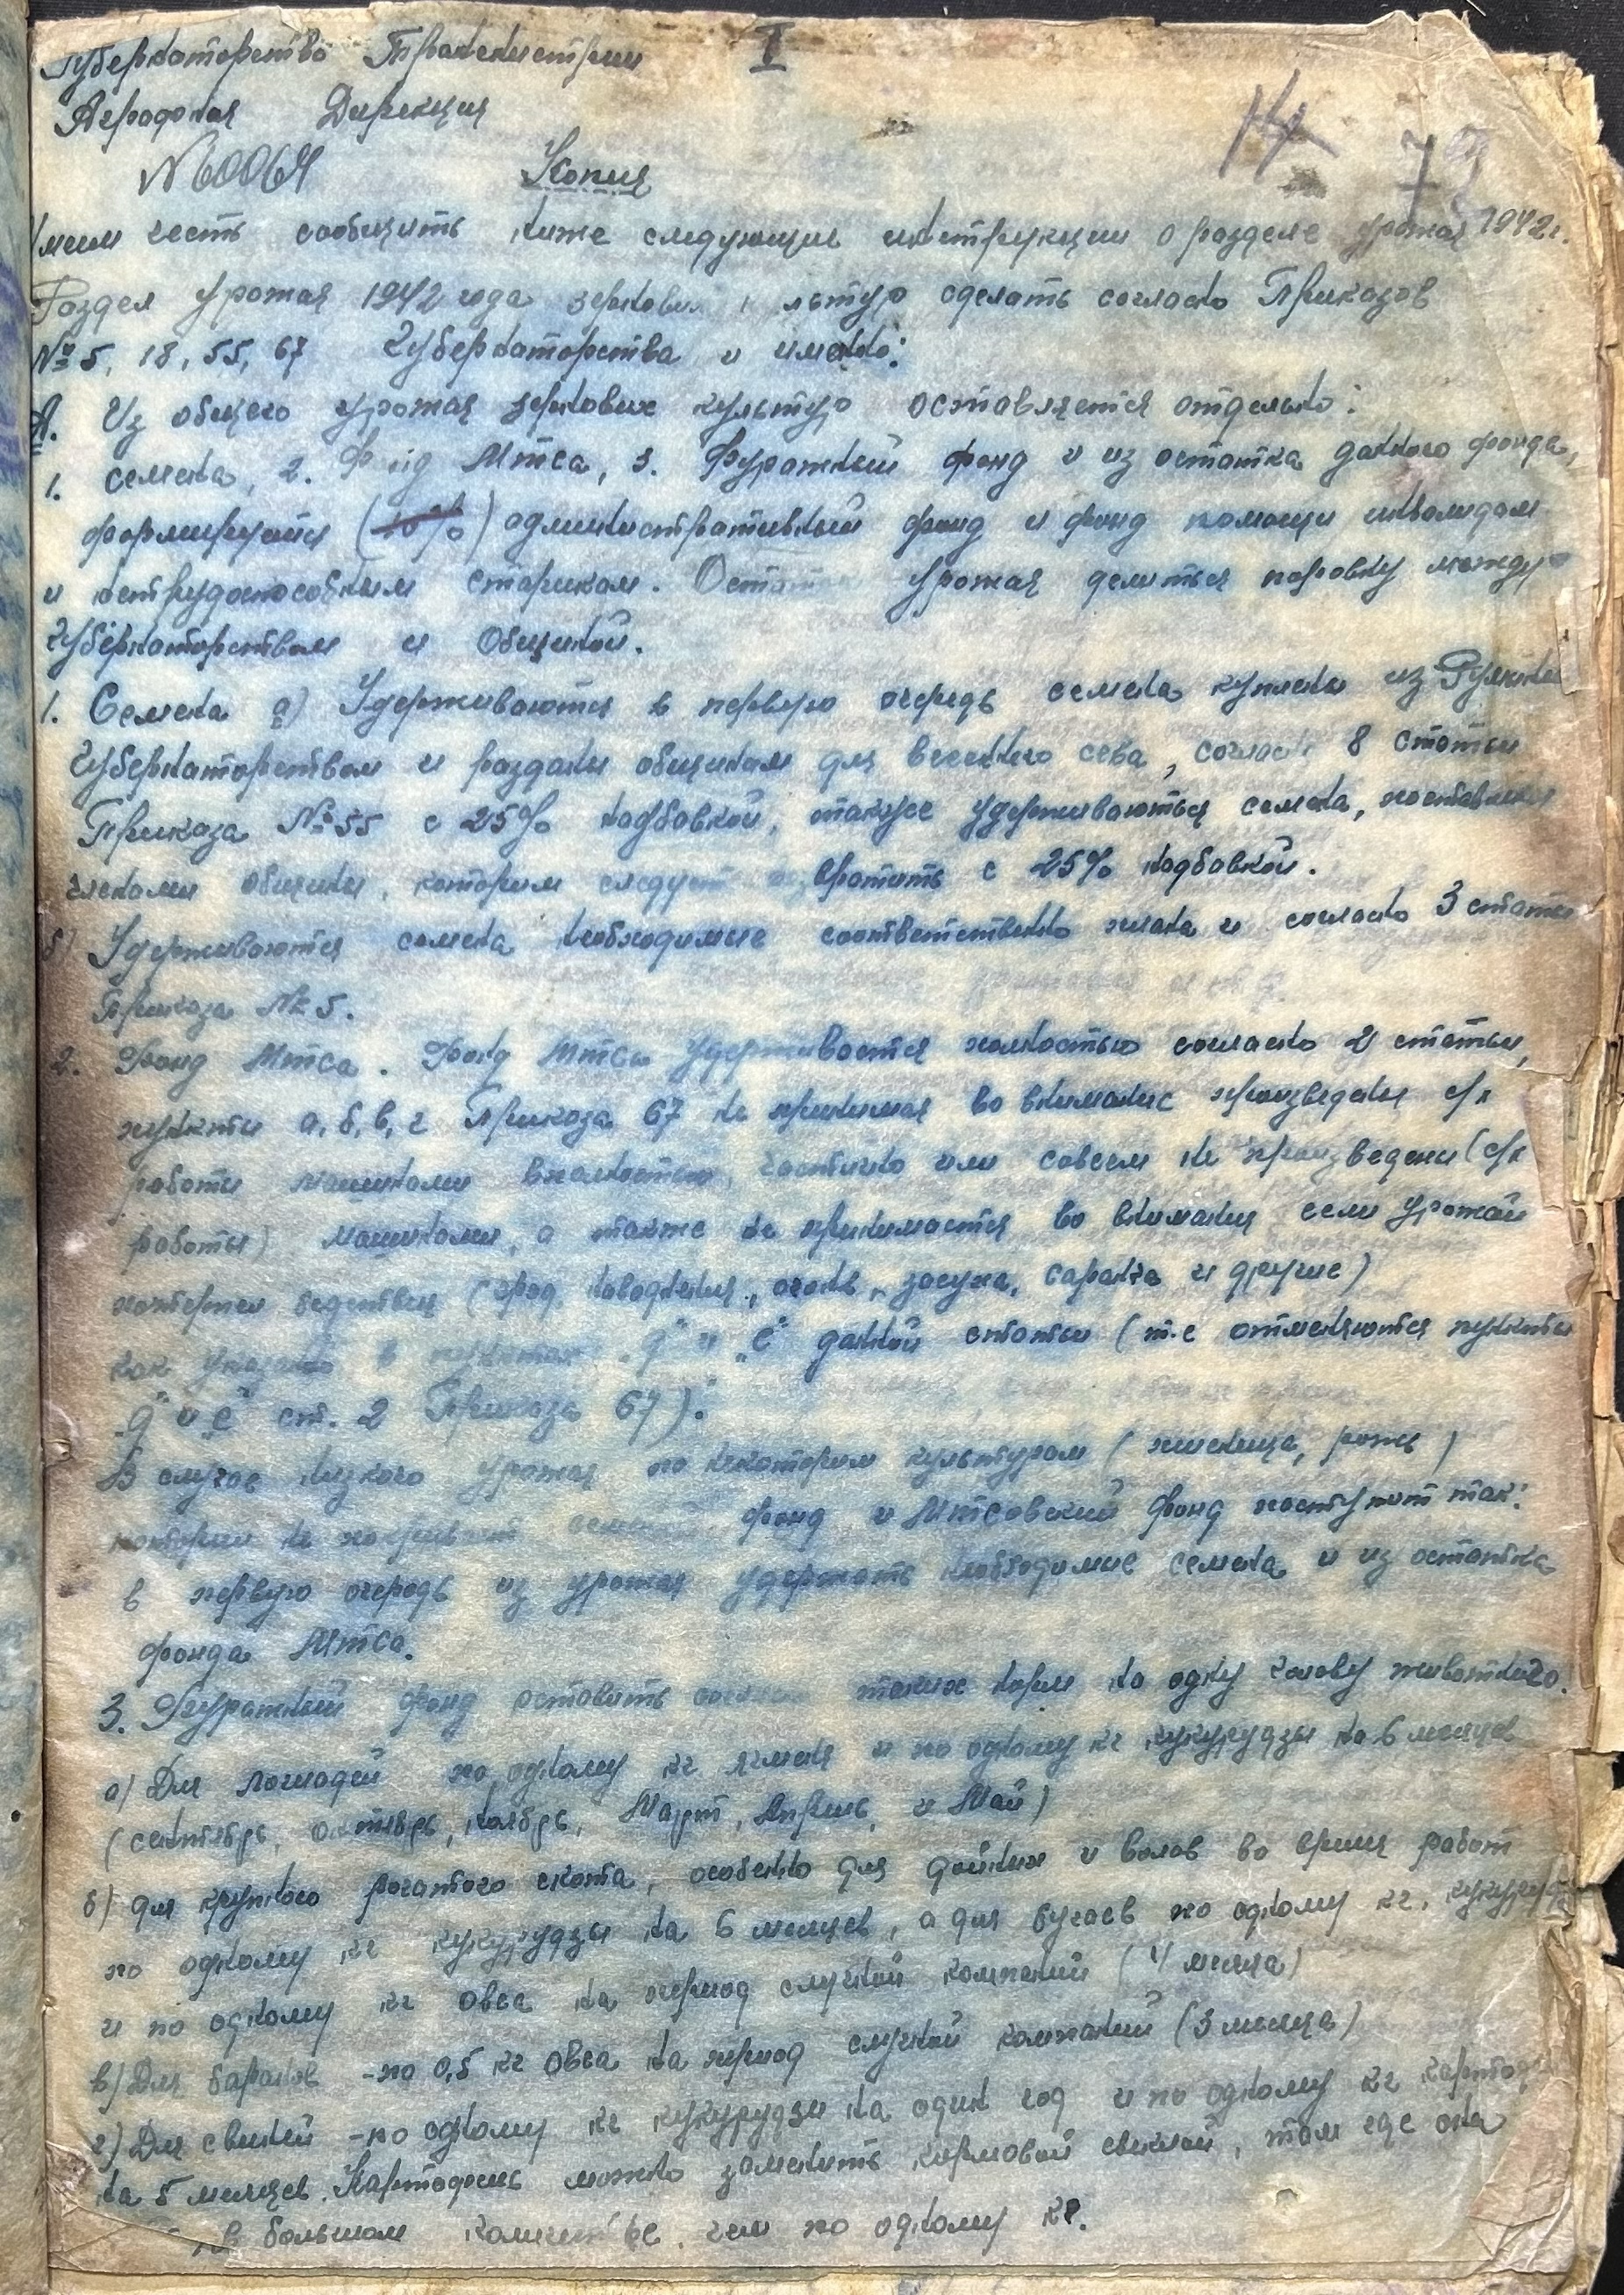 I
Губернаторство Транснистрии
Аграрная Дирекция
14 73
N60064 Копия
Имеем честь сообщить ниже следующие инструкции о разделе урожая 1942г.
Раздел урожая 1942 года зерновых культур сделать согласно Приказов
№ 5, 18, 55, 67 Губернаторства и именно:
А. Из общего урожая зерновых культур оставляется отдельно:
1. семена, 2. Фонд Мтса, 3. Фуражный фонд и из остатка данного фонда,
формируется (10%) административный фонд и фонд помощи инвалидам
и нетрудоспособным старикам. Остаток урожая делиться поровну между
Губернаторством и Общиной.
1. Семена а) Удерживаются в первую очередь семена куплены из Румынии
Губернаторством и разданы общинам для весеннего сева, согласно 8 статьи
Приказа № 55 с 25% надбавкой, также удерживаються семена, поставлены
членами общины, которым следует возвратить с 25% надбавкой.
б) Удерживаются семена необходимые соответственно плана и согласно 3 статьи
Приказа № 5.
2. Фонд Мтса. Фонд Мтсы удерживается полностью согласно 2 статьи,
пункты а, б, в, г Приказа 67 не принимая во внимание произведены с/х
работы машинами вполностью, частично или совсем не произведены (с/х
работы) машинами, а также не принимается во внимания если урожай
потерпел бедствия (град, наводнения, огонь, засуха, саранча и другие)
как указано в пунктах „д" и „е" данной статьи (т.е отменяются пункты
„д" и „е" ст. 2 Приказа 67).
В случае низкого урожая по некоторым культурам (пшеница, рожь)
которые не покрывают семенной фонд и Мтсовский фонд поступит так:
в первую очередь из урожая удержать необходимые семена и из остатка
фонда Мтса.
3. Фуражный фонд оставить согласно таких норм на одну голову животного.
а) Для лошадей по одному кг. ячменя и по одному кг кукурудзы на 6 месяцев
(сентябрь, октябрь, ноябрь, Март, Апрель, и Май)
б) для крупного рогатого скота, особенно для дойных и волов во время работ
по одному кг кукурудзы на 6 месяцев, а для бугаев по одному кг. кукурудз
и по одному кг овса на период случной компании (4 месяца)
в) Для баранов - по 0,5 кг овса на период случной компании (3 месяца)
г) Для свиней - по одному кг кукурудзы на один год и по одному кг картоф.
на 5 месяцев. Картофель можно заменить кормовой свеклой, там где она
в большом количестве, чем по одному кг.